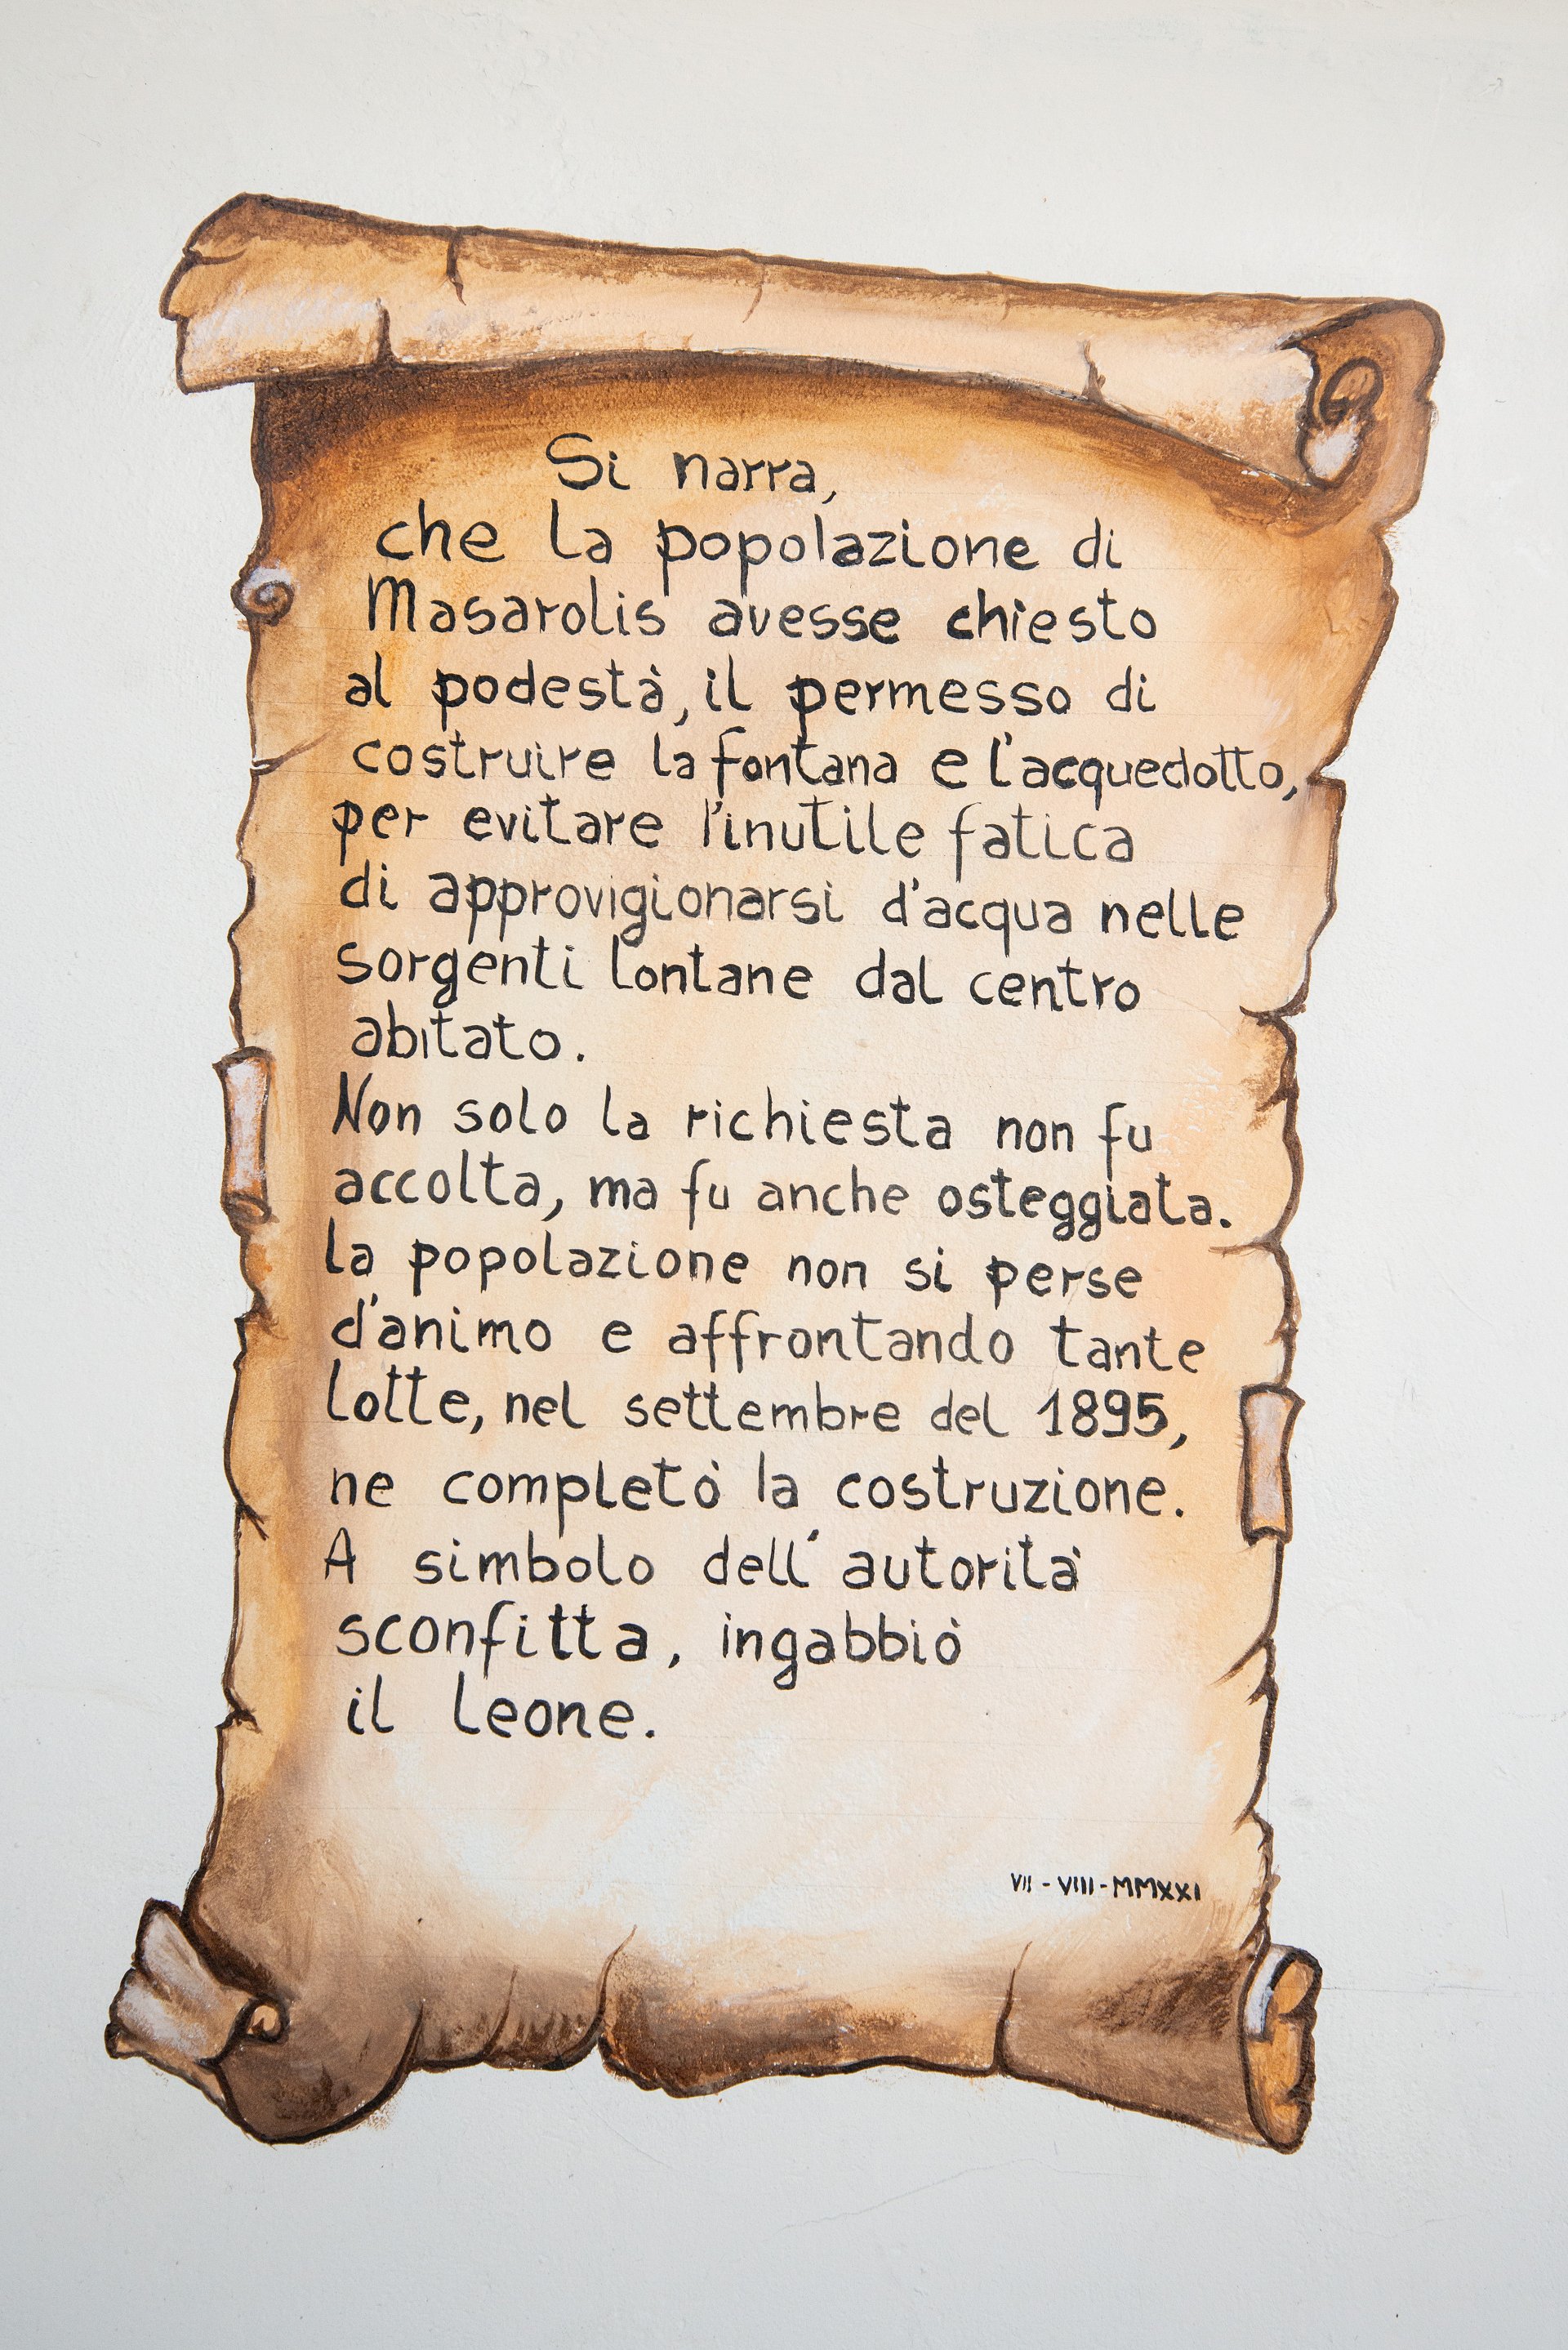 Si narra,
che la popolazione di
Masarolis avesse chiesto
al podestà, il permesso di
costruire la fontana e l'acquedotto,
per evitare l'inutile fatica
di approvigionarsi d'acqua nelle
sorgenti lontane dal centro
abitato.
Non solo la richiesta non fu
accolta, ma fu anche osteggiata.
la popolazione non si perse
d'animo e affrontando tante
lotte, nel settembre del 1895,
ne completò la costruzione.
A simbolo dell'autorità
sconfitta, ingabbiò
il leone.
VII-VIII-MMXXI